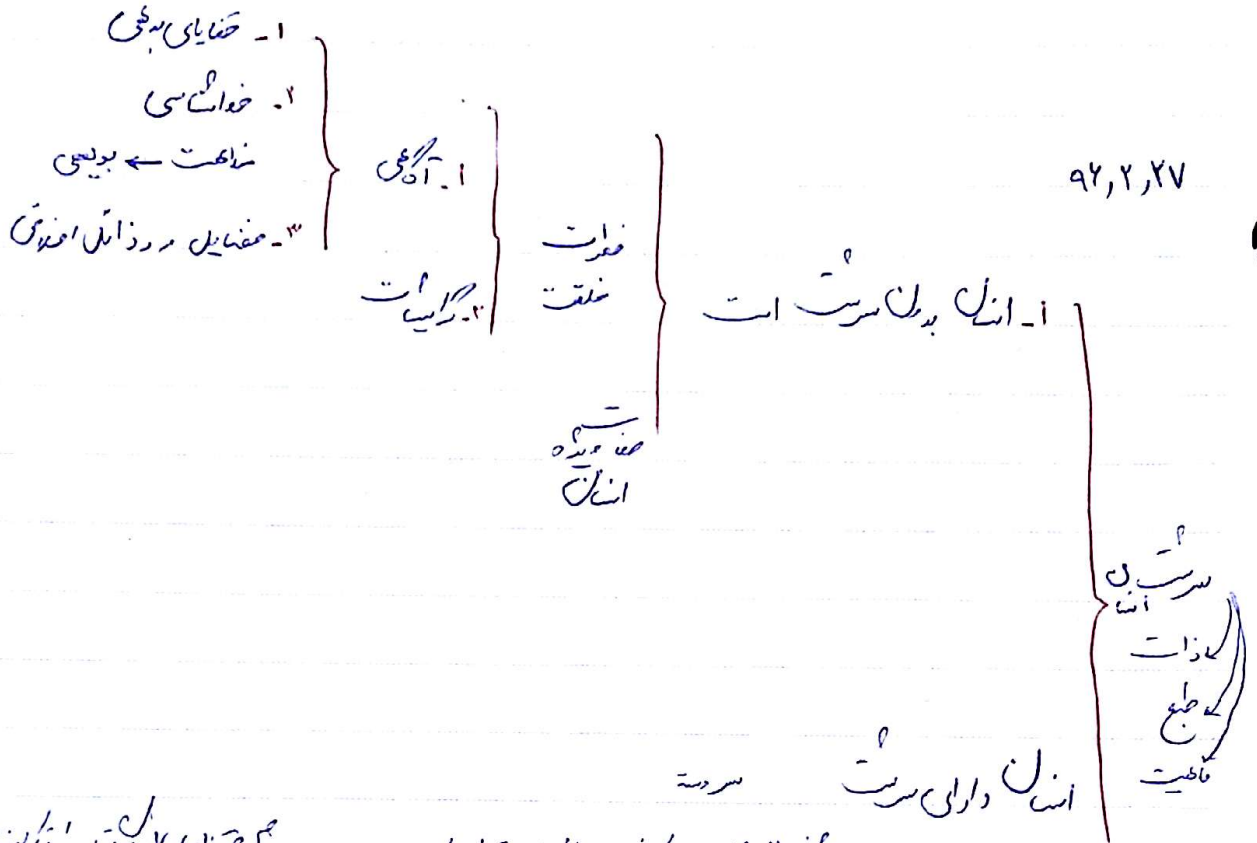 ۹۲,۲,۲۷
سرشت انسان
ذات
طبع
ماهیت
۱_ انسان بدون سرشت است
انسان دارای سرشت
فطرت
خلقت
صفات ویژه
انسان
۱. آگاهی
۲. گرایشات
۱_ قضایای بدیهی
۲. خداشناسی
بدیهی
۳_ فضایل و رذائل اخلاقی